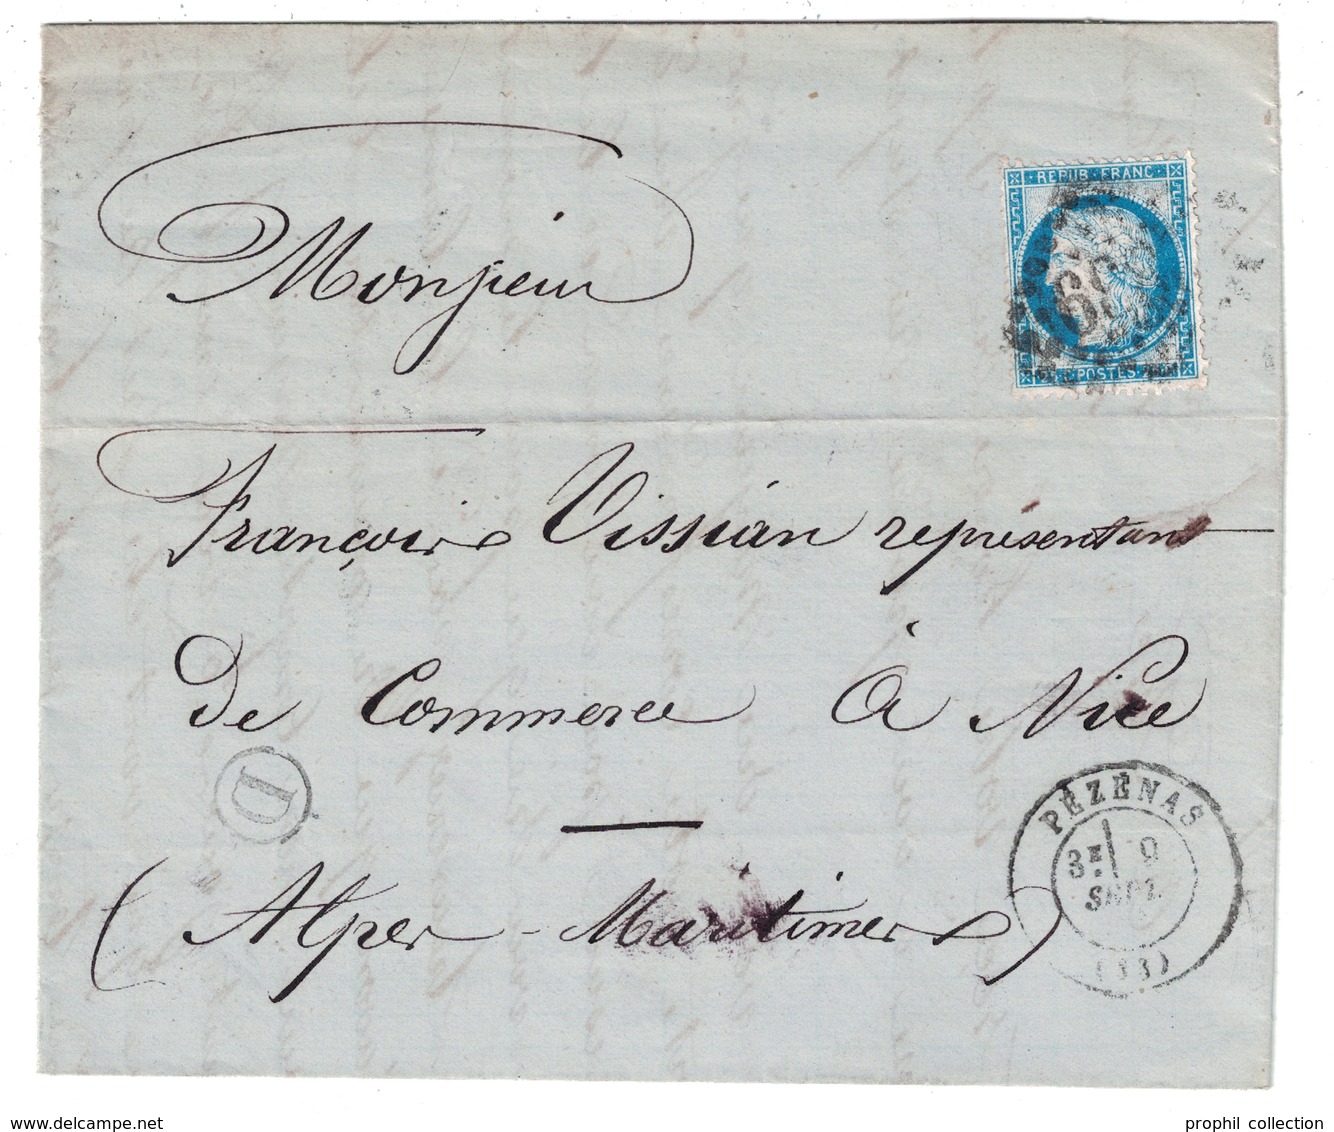 REPUB·FRANC
POSTES
Monsieur
François Vissian représentant
De Commerce à Nice
D
(Alpes-Maritimes)
PÉZÉNAS
3E 9
SEPT.
(33)
www.delcampe.net
prophil collection